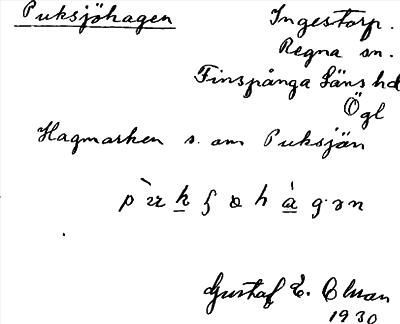 Puksjöhagen
Ingestorp.
Regna sn.
Finspånga Läns hd
Ögl
Hagmarken s. om Puksjön
Gustaf E.
1930